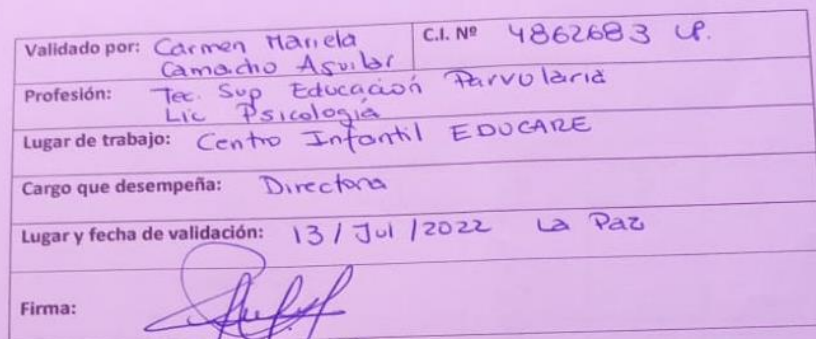 Validado por: Carmen Mariela
Camacho Aguilar
C.I. Nº 4862683 LP.
Profesión: Tec. Sup Educación Parvularia
Lic Psicología
Lugar de trabajo: Centro Infantil EDUCARE
Cargo que desempeña: Directora
Lugar y fecha de validación: 13 / Jul / 2022 La Paz
Firma: